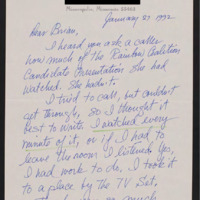 Minneapolis, Minnesota 55403
January 27 1992
Dear Brian,
I heard you ask a caller
how much of the Rainbow Coalition
Candidate Presentation she had
watched. She hadn't.
I tried to call, but couldn't
get through, so I thought it
best to write. I watched every
minute of it, or if I had to
leave the room I listened. Yes,
I had work to do. I took it
to a place by the TV Set.
much